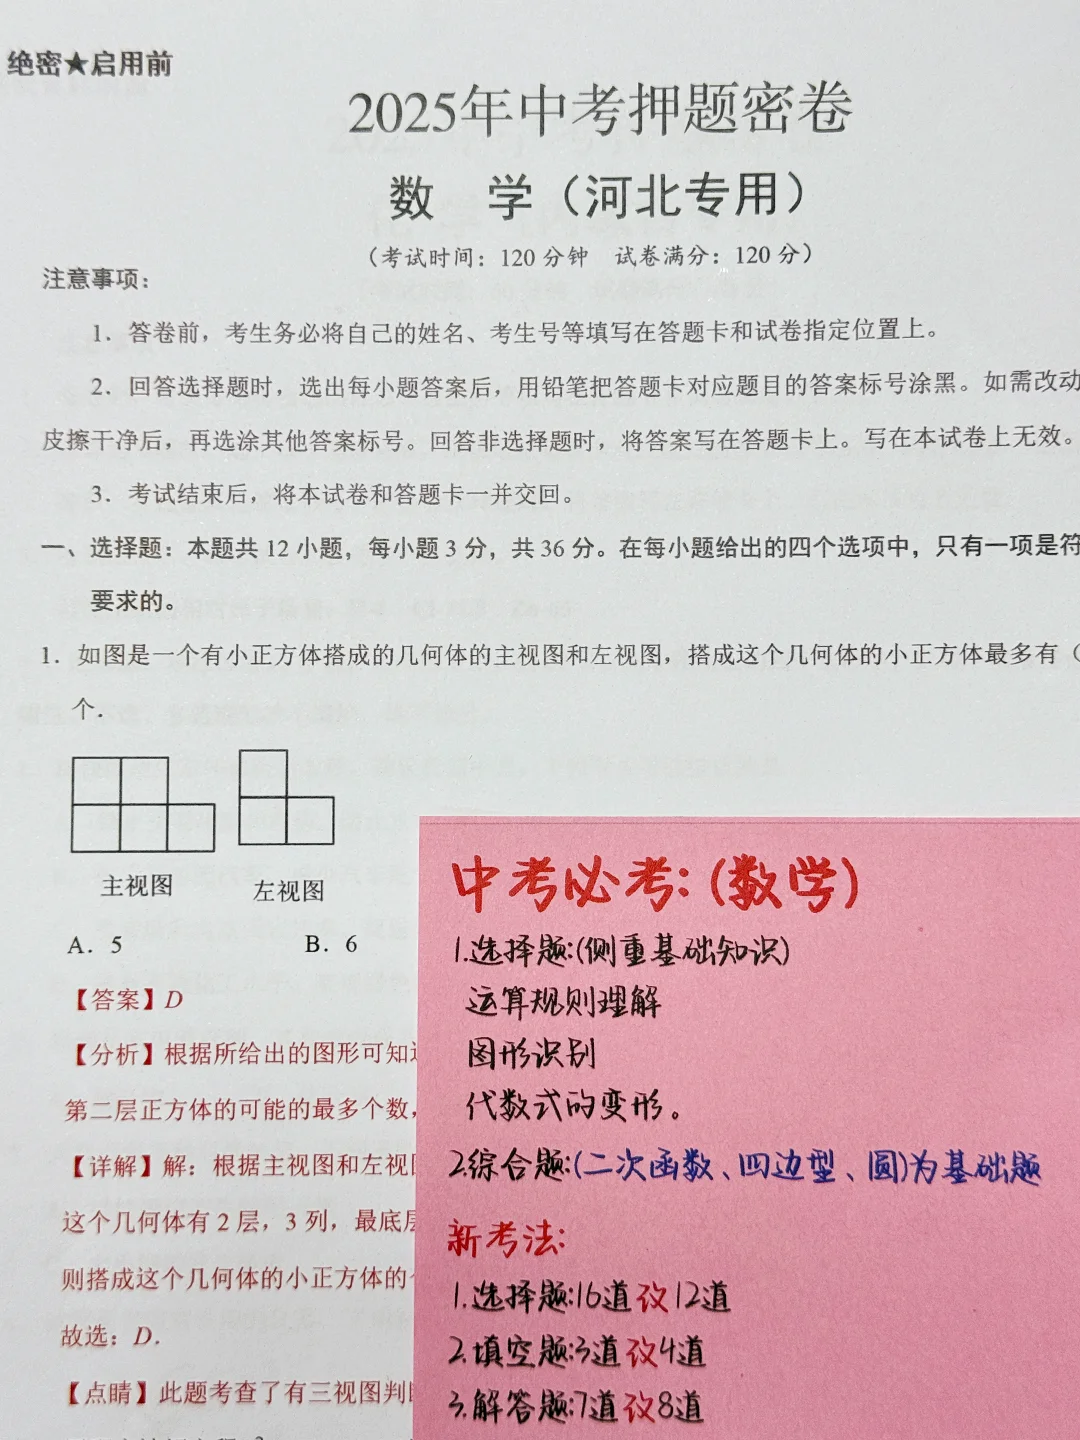 绝密★启用前
2025年中考押题密卷
数 学（河北专用）
（考试时间：120 分钟 试卷满分：120 分）
注意事项：
1．答卷前，考生务必将自己的姓名、考生号等填写在答题卡和试卷指定位置上。
2．回答选择题时，选出每小题答案后，用铅笔把答题卡对应题目的答案标号涂黑。如需改动
皮擦干净后，再选涂其他答案标号。回答非选择题时，将答案写在答题卡上。写在本试卷上无效。
3．考试结束后，将本试卷和答题卡一并交回。
一、选择题：本题共 12 小题，每小题 3 分，共 36 分。在每小题给出的四个选项中，只有一项是符
要求的。
1．如图是一个有小正方体搭成的几何体的主视图和左视图，搭成这个几何体的小正方体最多有（
个．
主视图 左视图
A．5 B．6
【答案】D
【分析】根据所给出的图形可知
第二层正方体的可能的最多个数，
【详解】解：根据主视图和左视
这个几何体有 2 层，3 列，最底
则搭成这个几何体的小正方体的
故选：D．
【点睛】此题考查了有三视图判
中考必考：(数学)
1.选择题:(侧重基础知识)
运算规则理解
图形识别
代数式的变形。
2.综合题:(二次函数、四边型、圆)为基础题
新考法:
1.选择题:16道改12道
2.填空题:3道改4道
3.解答题:7道改8道